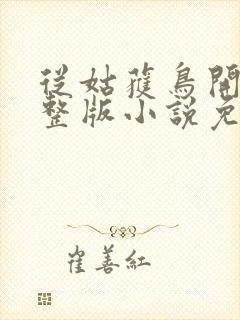 從姑獲鳥開
整版小說免
崔善紅